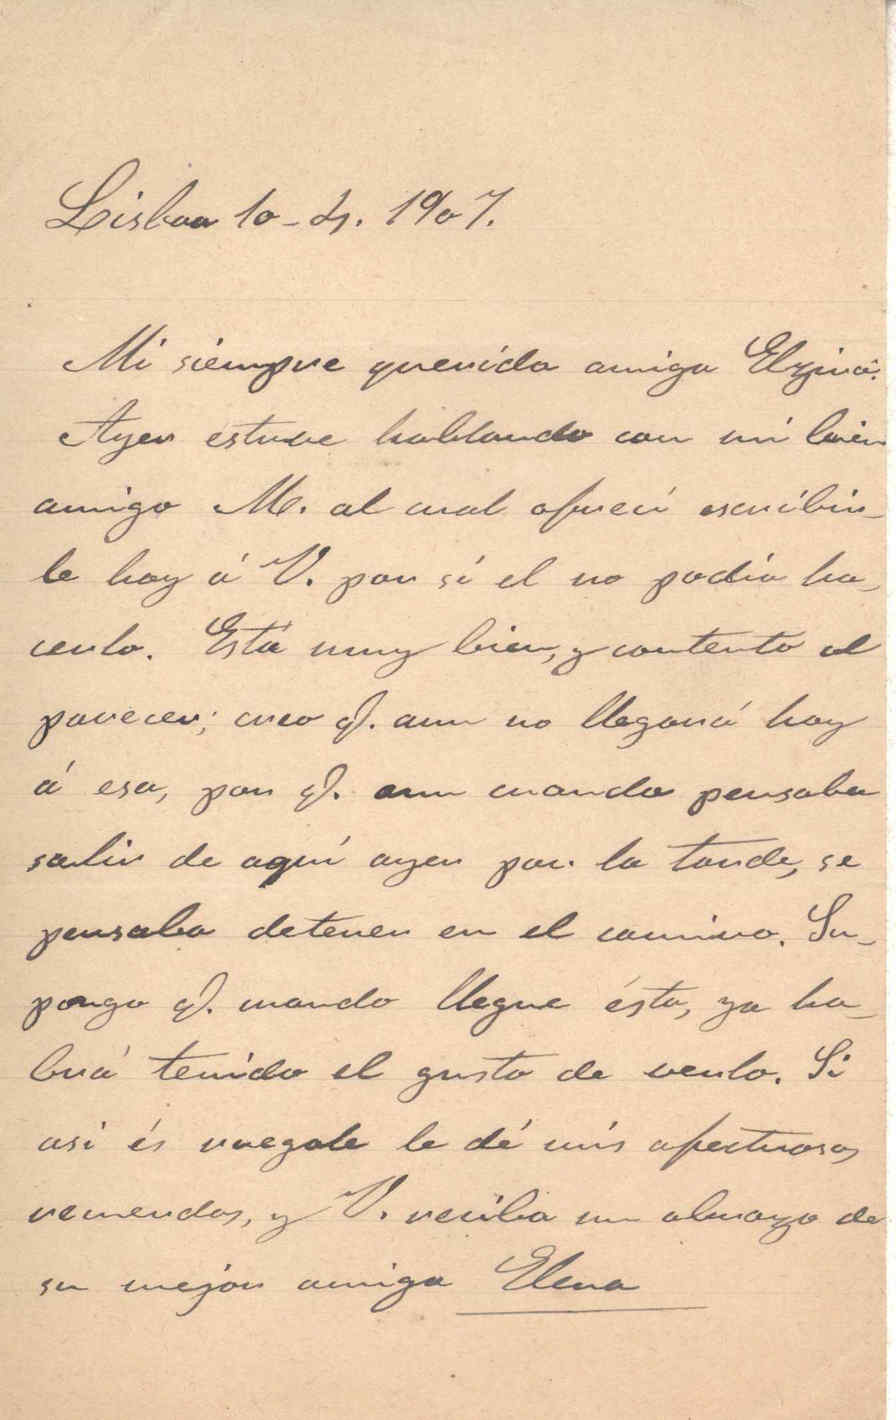 Lisboa 10-4. 1907.
Mi siempre querida amiga Elzira.
Ayer estuve hablando con mi buen
amigo M. al cual ofrecí escribir-
le hoy á V. por si el no podía ha-
cerlo. Está muy bien, y contento al
parecer; creo q. aun no llegará hoy
á esa, por q. aun cuando pensaba
salir de aquí ayer por la tarde, se
pensaba detener en el camino. Su-
pongo q. cuando llegue ésta, ya ha-
brá tenido el gusto de verlo. Si
asi és ruegole le dé mis afectuosos
recuerdos, y V. reciba un abrazo de
su mejor amiga Elena